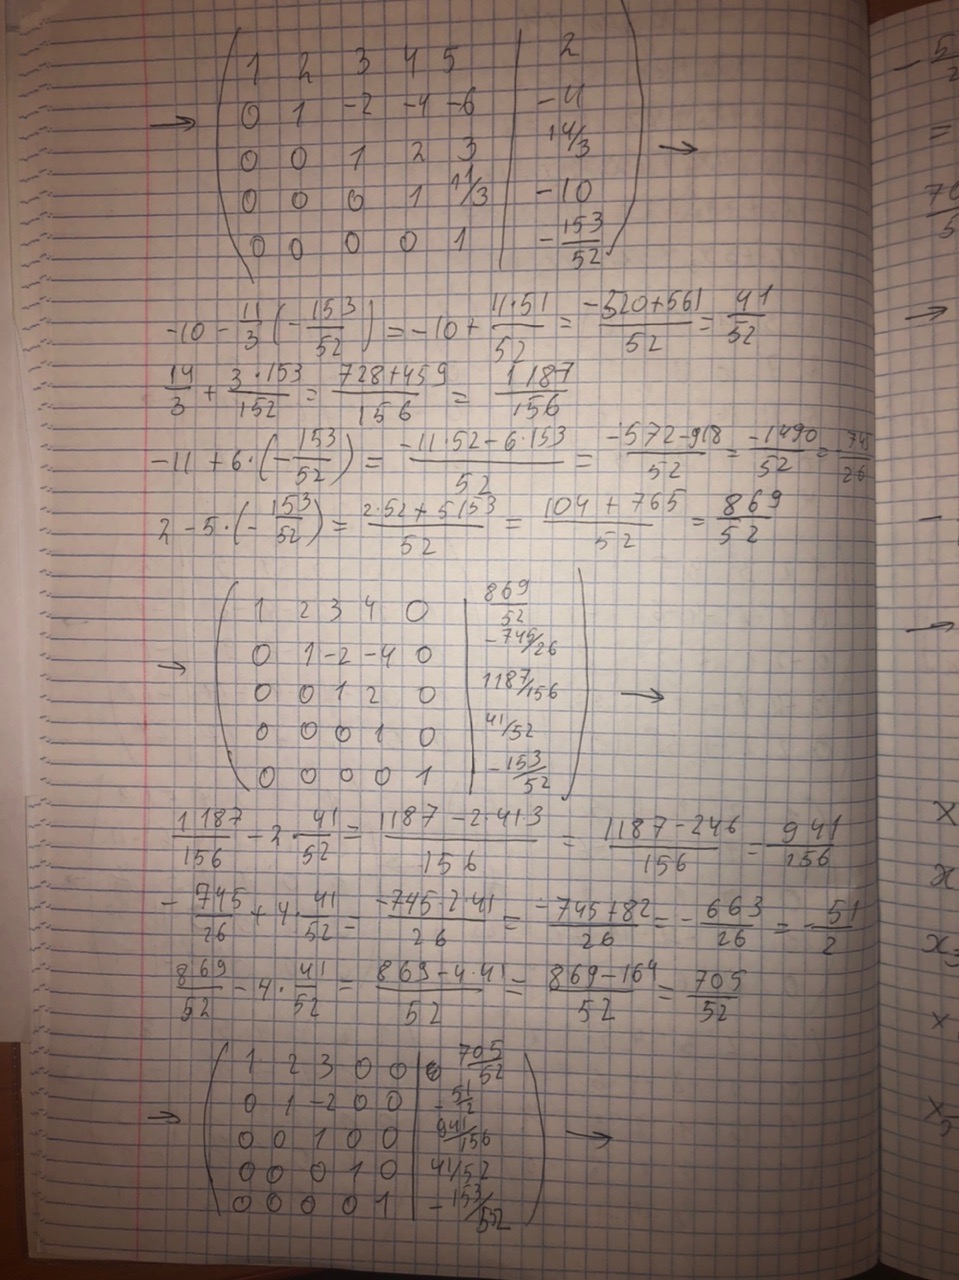 1 2 3 4 5 | 2
→ 0 1 -2 -4 -6 | -11
0 0 1 2 3 | 14/3 →
0 0 0 1 11/3 | -10
0 0 0 0 1 | -153/52
-10 - 11/3 (-153/52) = -10 + 11·51/52 = -520+561/52 = 41/52
14/3 + 3·153/152 = 728+459/156 = 1187/156
-11 + 6·(-153/52) = -11·52-6·153/52 = -572-918/52 = -1490/52 = 745/26
2 - 5·(-153/52) = 2·52+5153/52 = 104+765/52 = 869/52
1 2 3 4 0 | 869/52
0 1 -2 -4 0 | -745/26
→ 0 0 1 2 0 | 1187/156 →
0 0 0 1 0 | 41/52
0 0 0 0 1 | -153/52
1187/156 - 2·41/52 = 1187-2·413/156 = 1187-246/156 = 941/156
-745/26 + 4·41/52 = -745·2·41/26 = -745+82/26 = -663/26 = -51/2
869/52 - 4·41/52 = 869-4·41/52 = 869-164/52 = 705/52
1 2 3 0 0 | 705/52
→ 0 1 -2 0 0 | -51/2
0 0 1 0 0 | 941/156 →
0 0 0 1 0 | 41/52
0 0 0 0 1 | -153/52